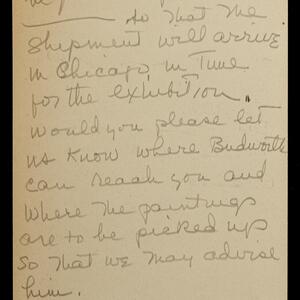 so that the
shipment will arrive
in Chicago in time
for the exhibition.
Would you please let
us know where Budworth
can reach you and
where the paintings
are to be picked up
so that we may advise
him.